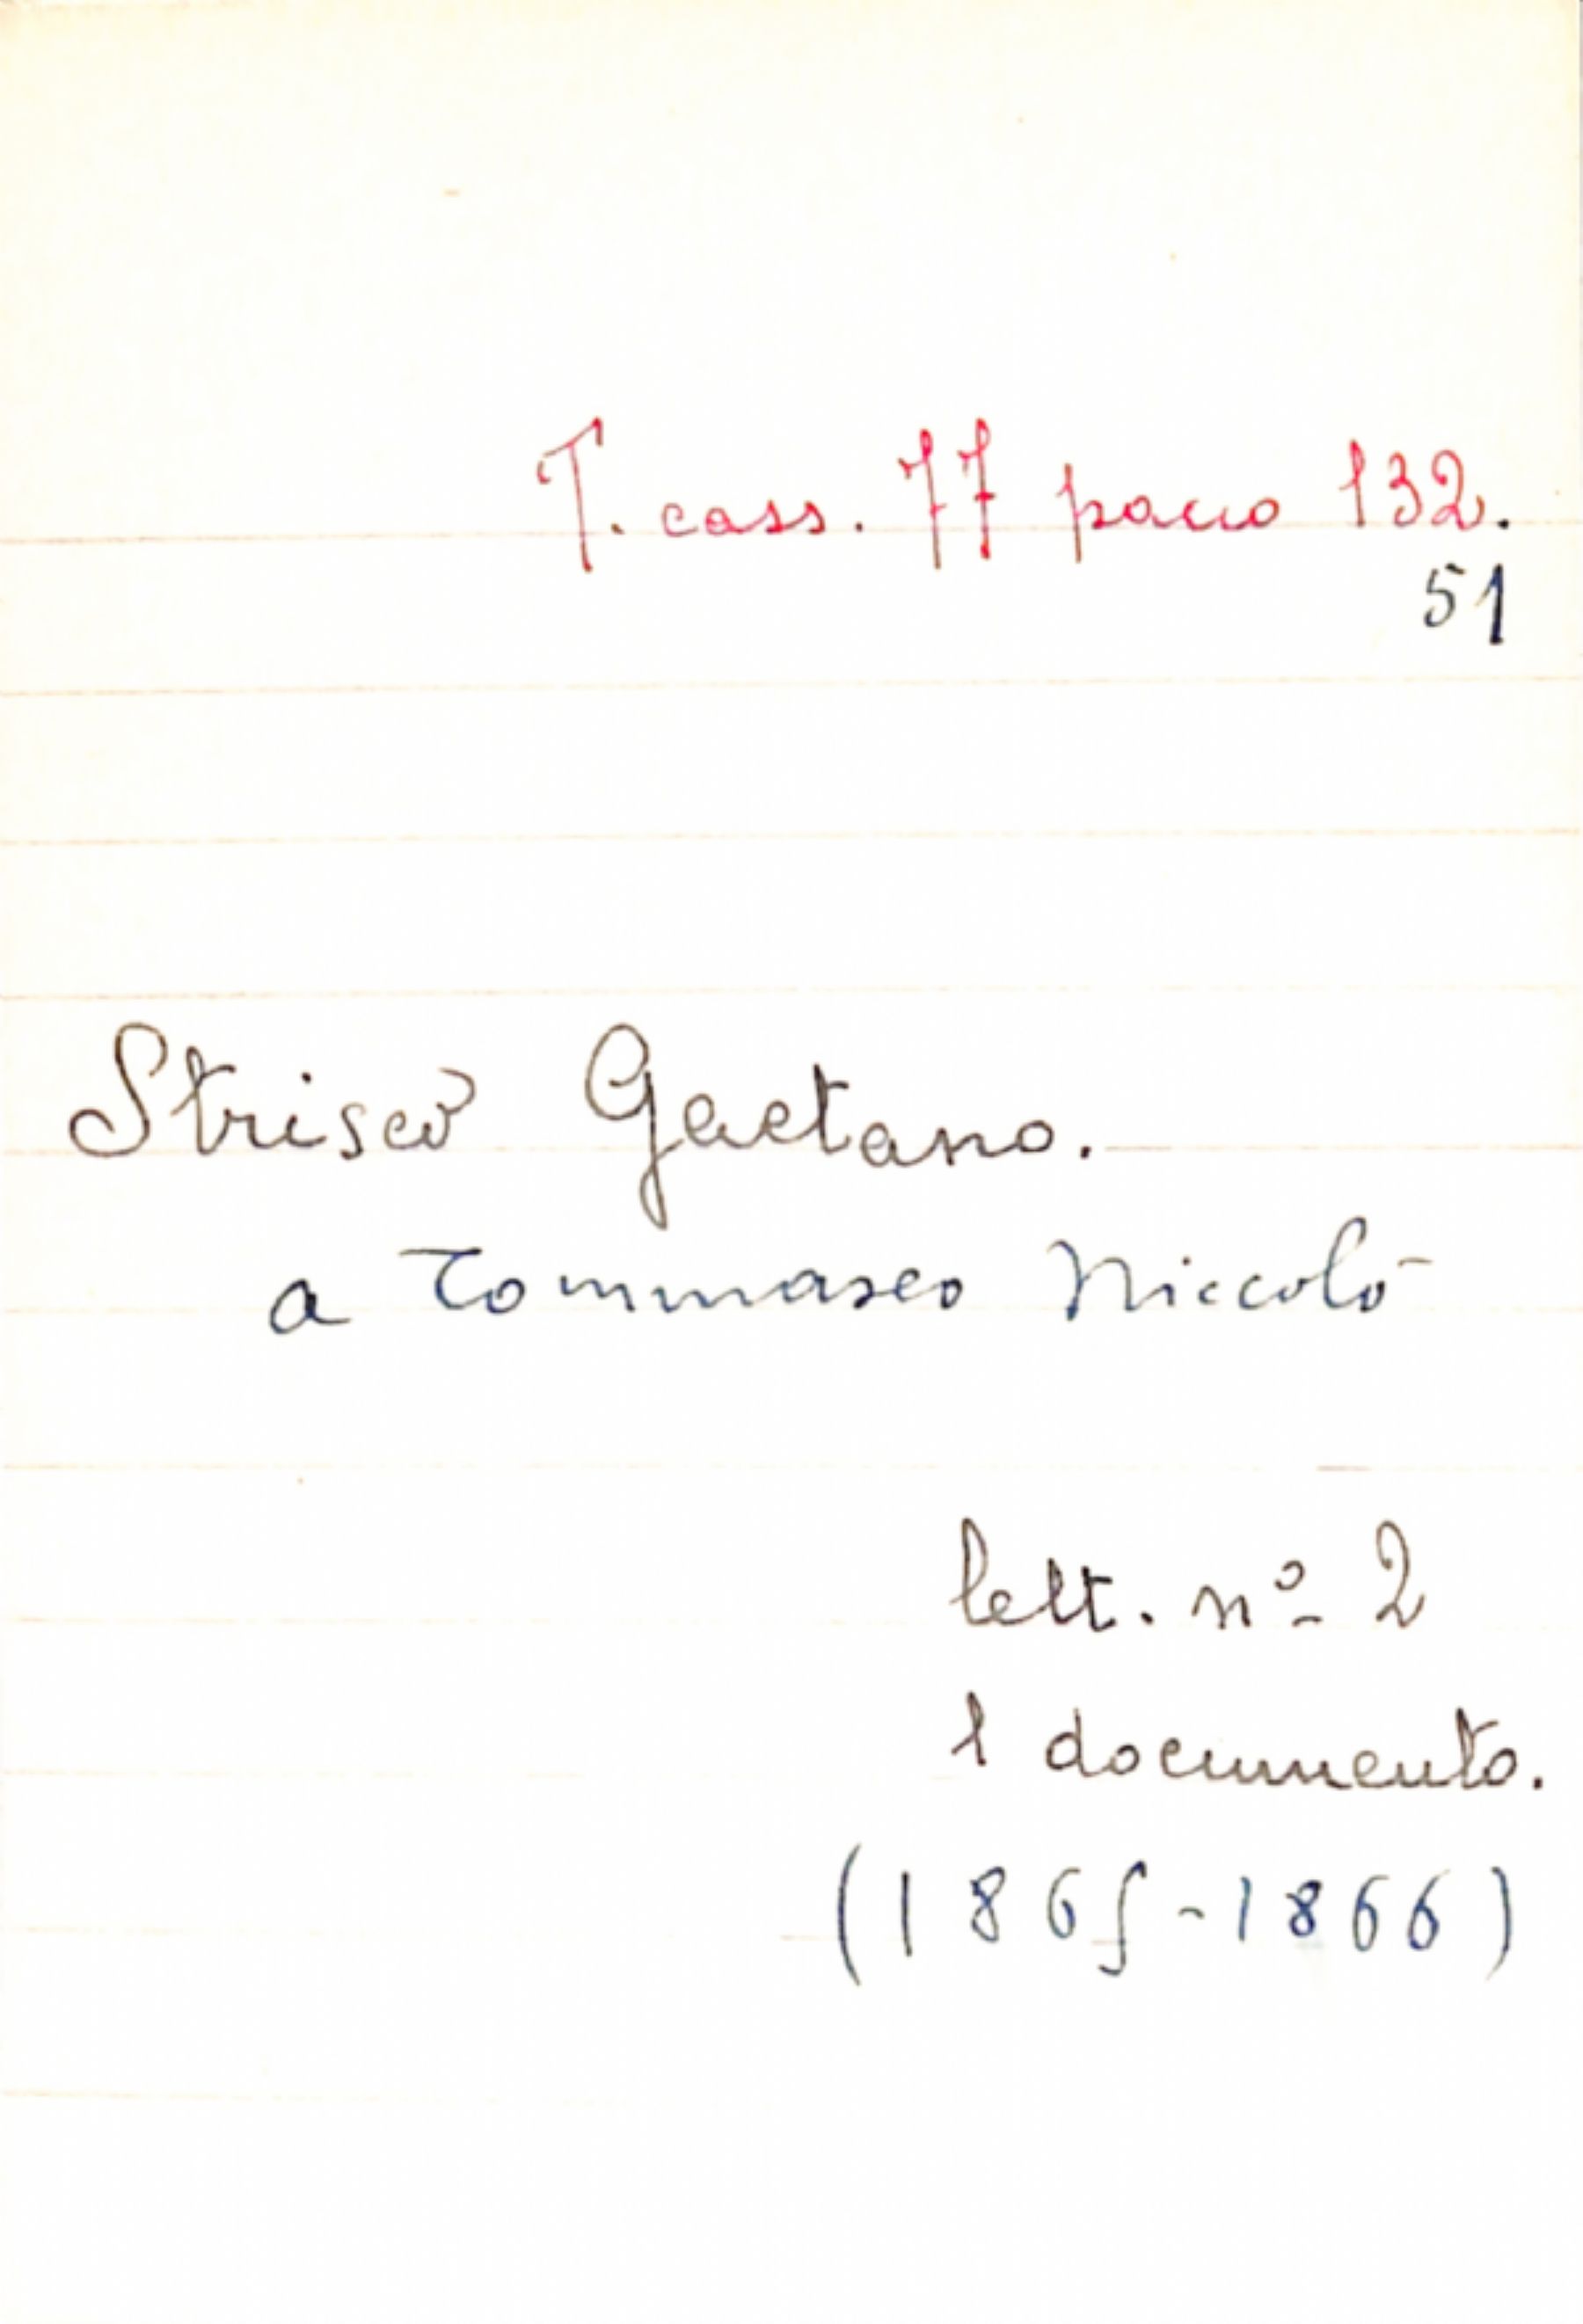 T. cass. 77 pacco 132.
51
Gaetano.
a Tommaseo Niccolò
lett. nº 2
1 documento.
(1865-1866)